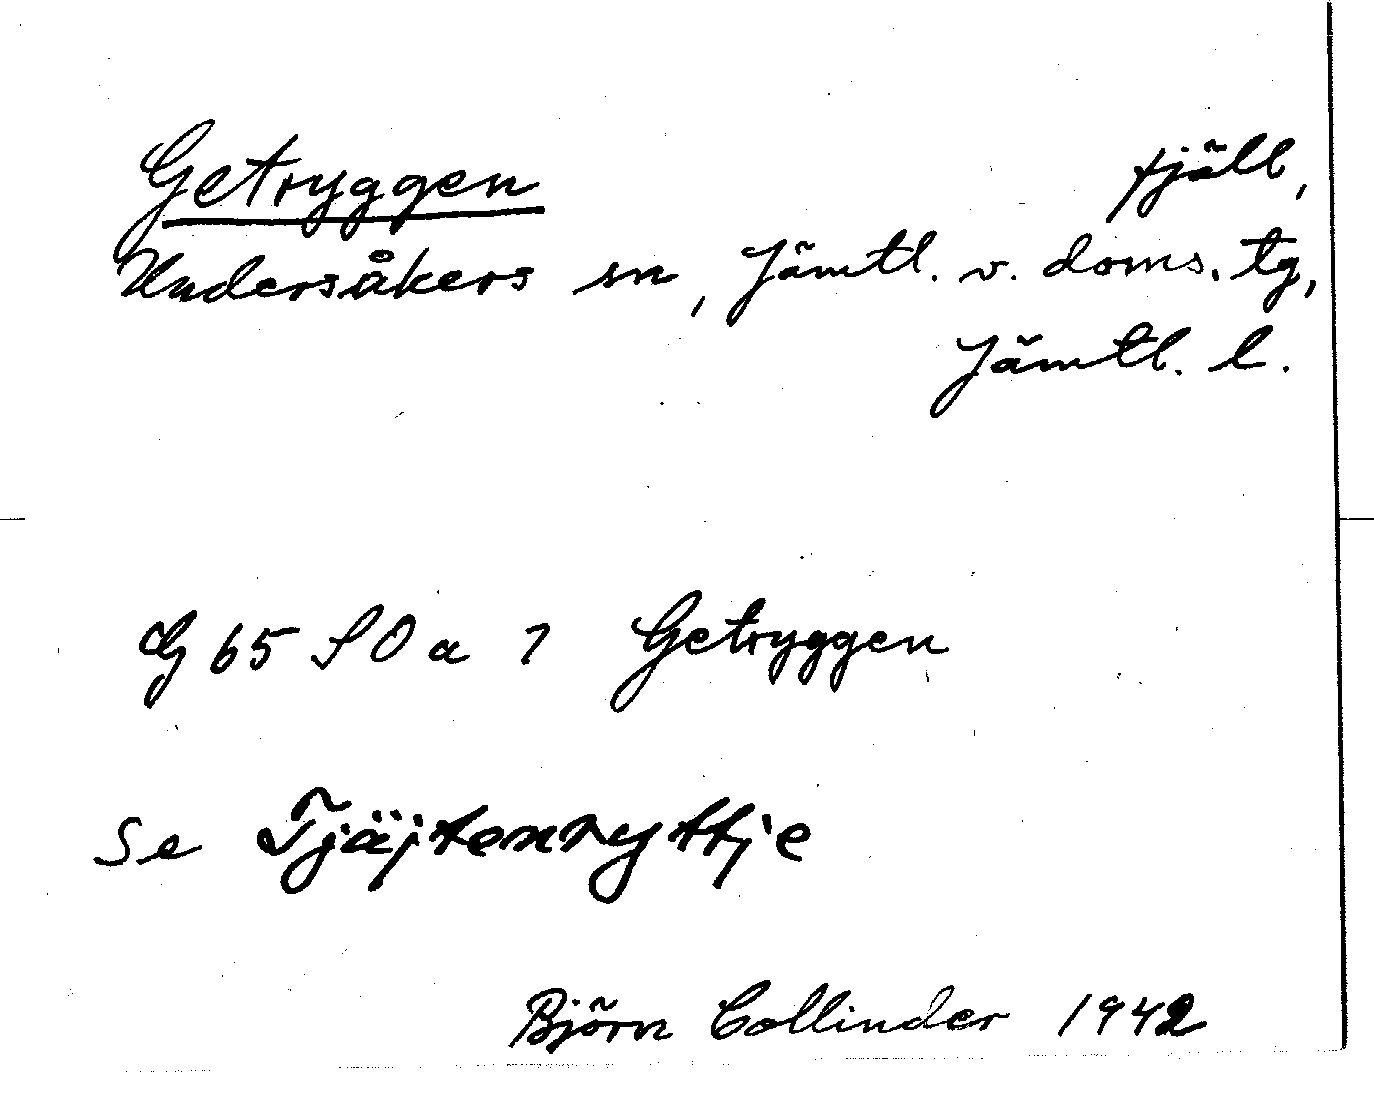 Getryggen fjäll,
Undersåkers sn, Jämtl. v. doms. tg,
Jämtl. l.
G 65 SO a 7 Getryggen
Se Tjäjtenryttje
Björn Collinder 1942